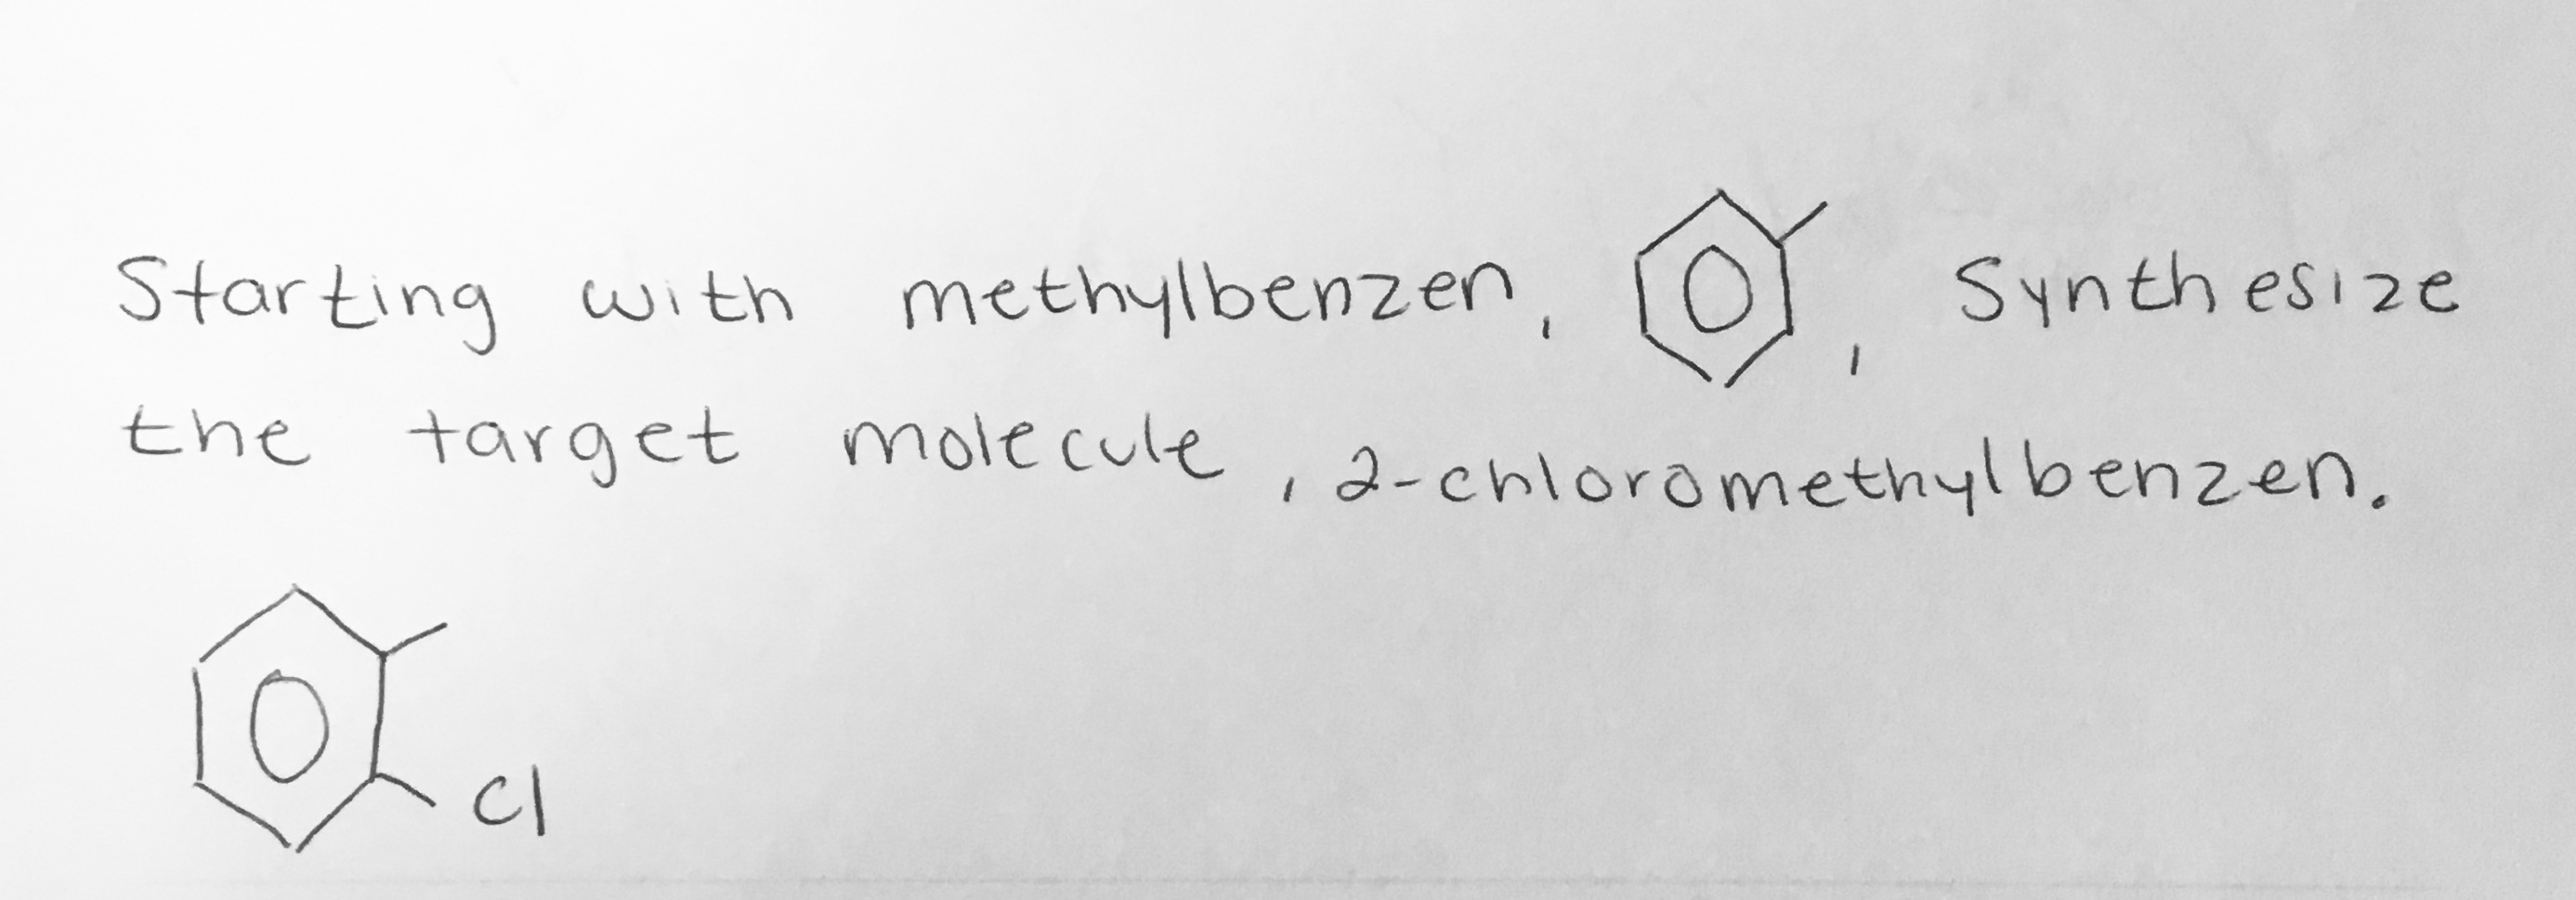 Starting with methylbenzen, , Synthesize
the target molecule, 2-chloromethylbenzen.
Cl